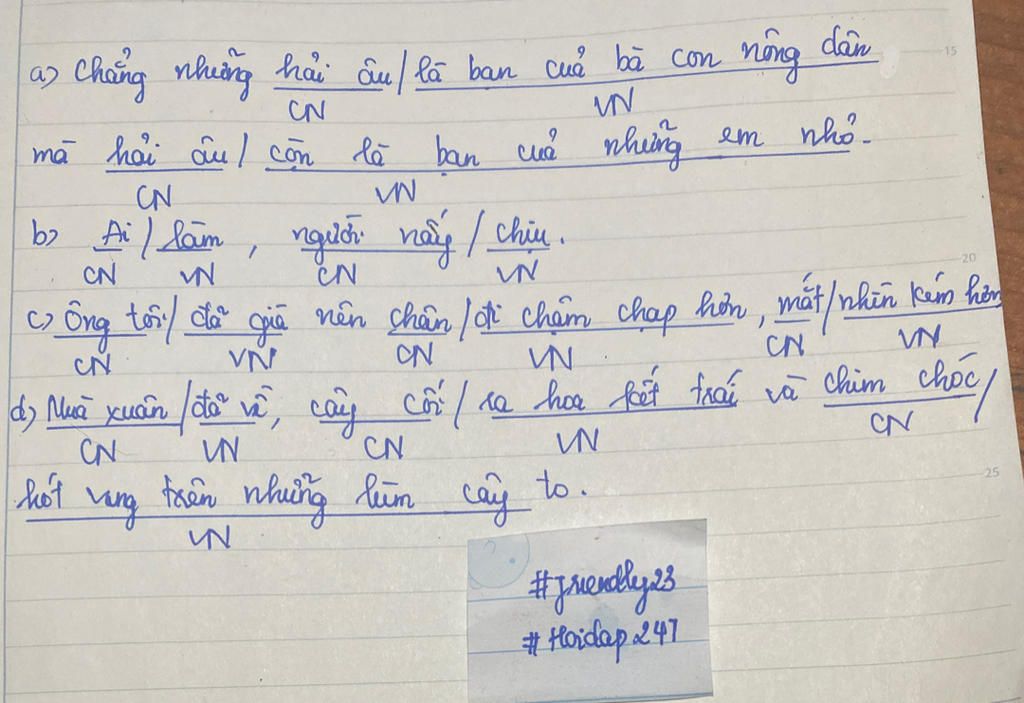 a) Chẳng những hải âu / là bạn của bà con nông dân
CN VN
mà hải âu / còn là bạn của những em nhỏ.
CN VN
b) Ai / làm, người nấy / chịu.
CN VN CN VN
c) Ông tôi / đã già nên chân / đi chậm chạp hơn, mắt / nhìn kém hơn
CN VN CN VN CN VN
d) Mùa xuân / đã về, cây cối / ra hoa kết trái và chim chóc /
CN VN CN VN CN
hót vang trên những lùm cây to.
VN
#friendly23
#Hoidap247
15
20
25